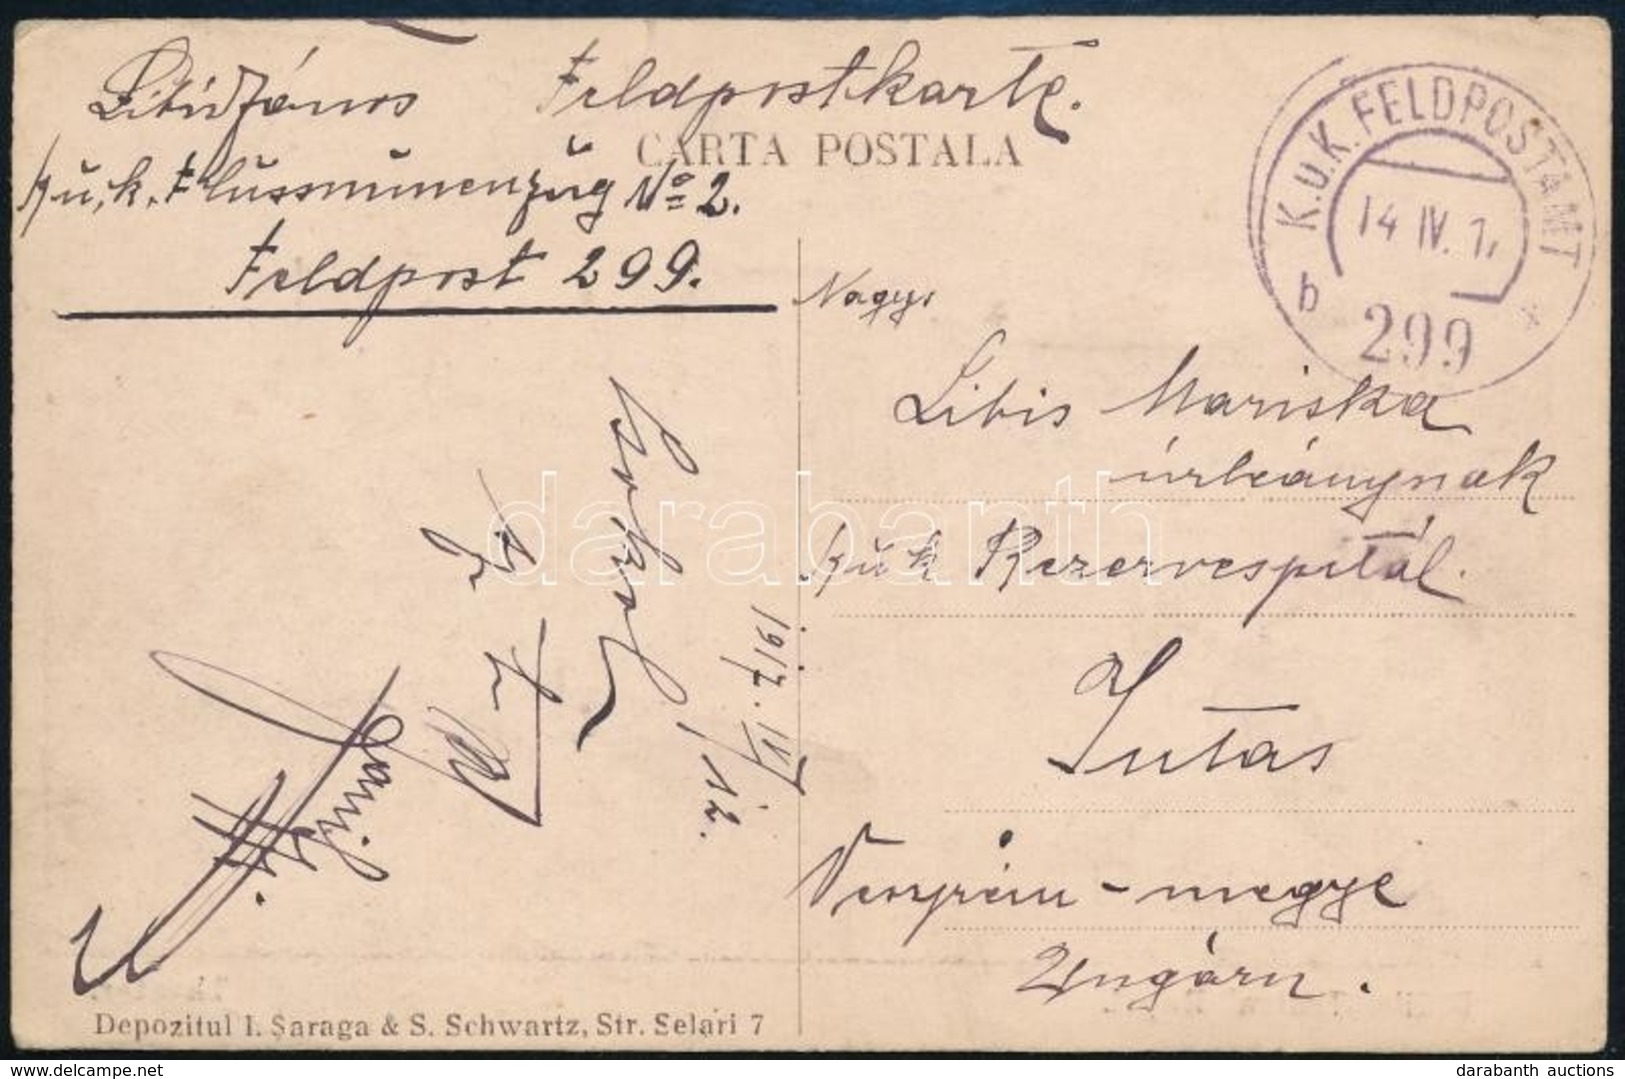 Feldpostkarte.
CARTA POSTALA
János
k.u.k. Flussminenzug No 2.
Feldpost 299.
K.u.K. FELDPOSTAMT
14 IV. 17
b
299
*
Nagys.
Libis Mariska
úrleánynak
k u k Rezervespitál.
Jutas
Veszprém-megye
Ungárn.
1917. IV/12.
Depozitul I. Șaraga & S. Schwartz, Str. Șelari 7
darabanth
delcampe.net
darabanth auctions